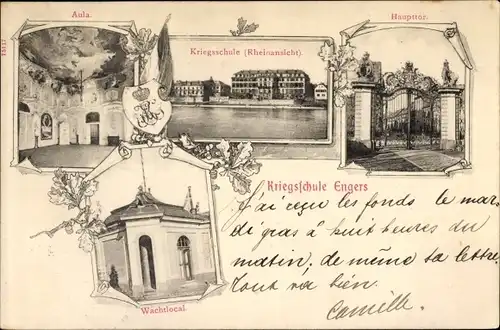 Aula.
Kriegsschule (Rheinansicht).
Haupttor.
Kriegsschule Engers
J'ai reçu les fonds le mar-
di gras à huit heures du
matin; de même ta lettre.
Tout va bien.
Camille.
Wachtlocal.